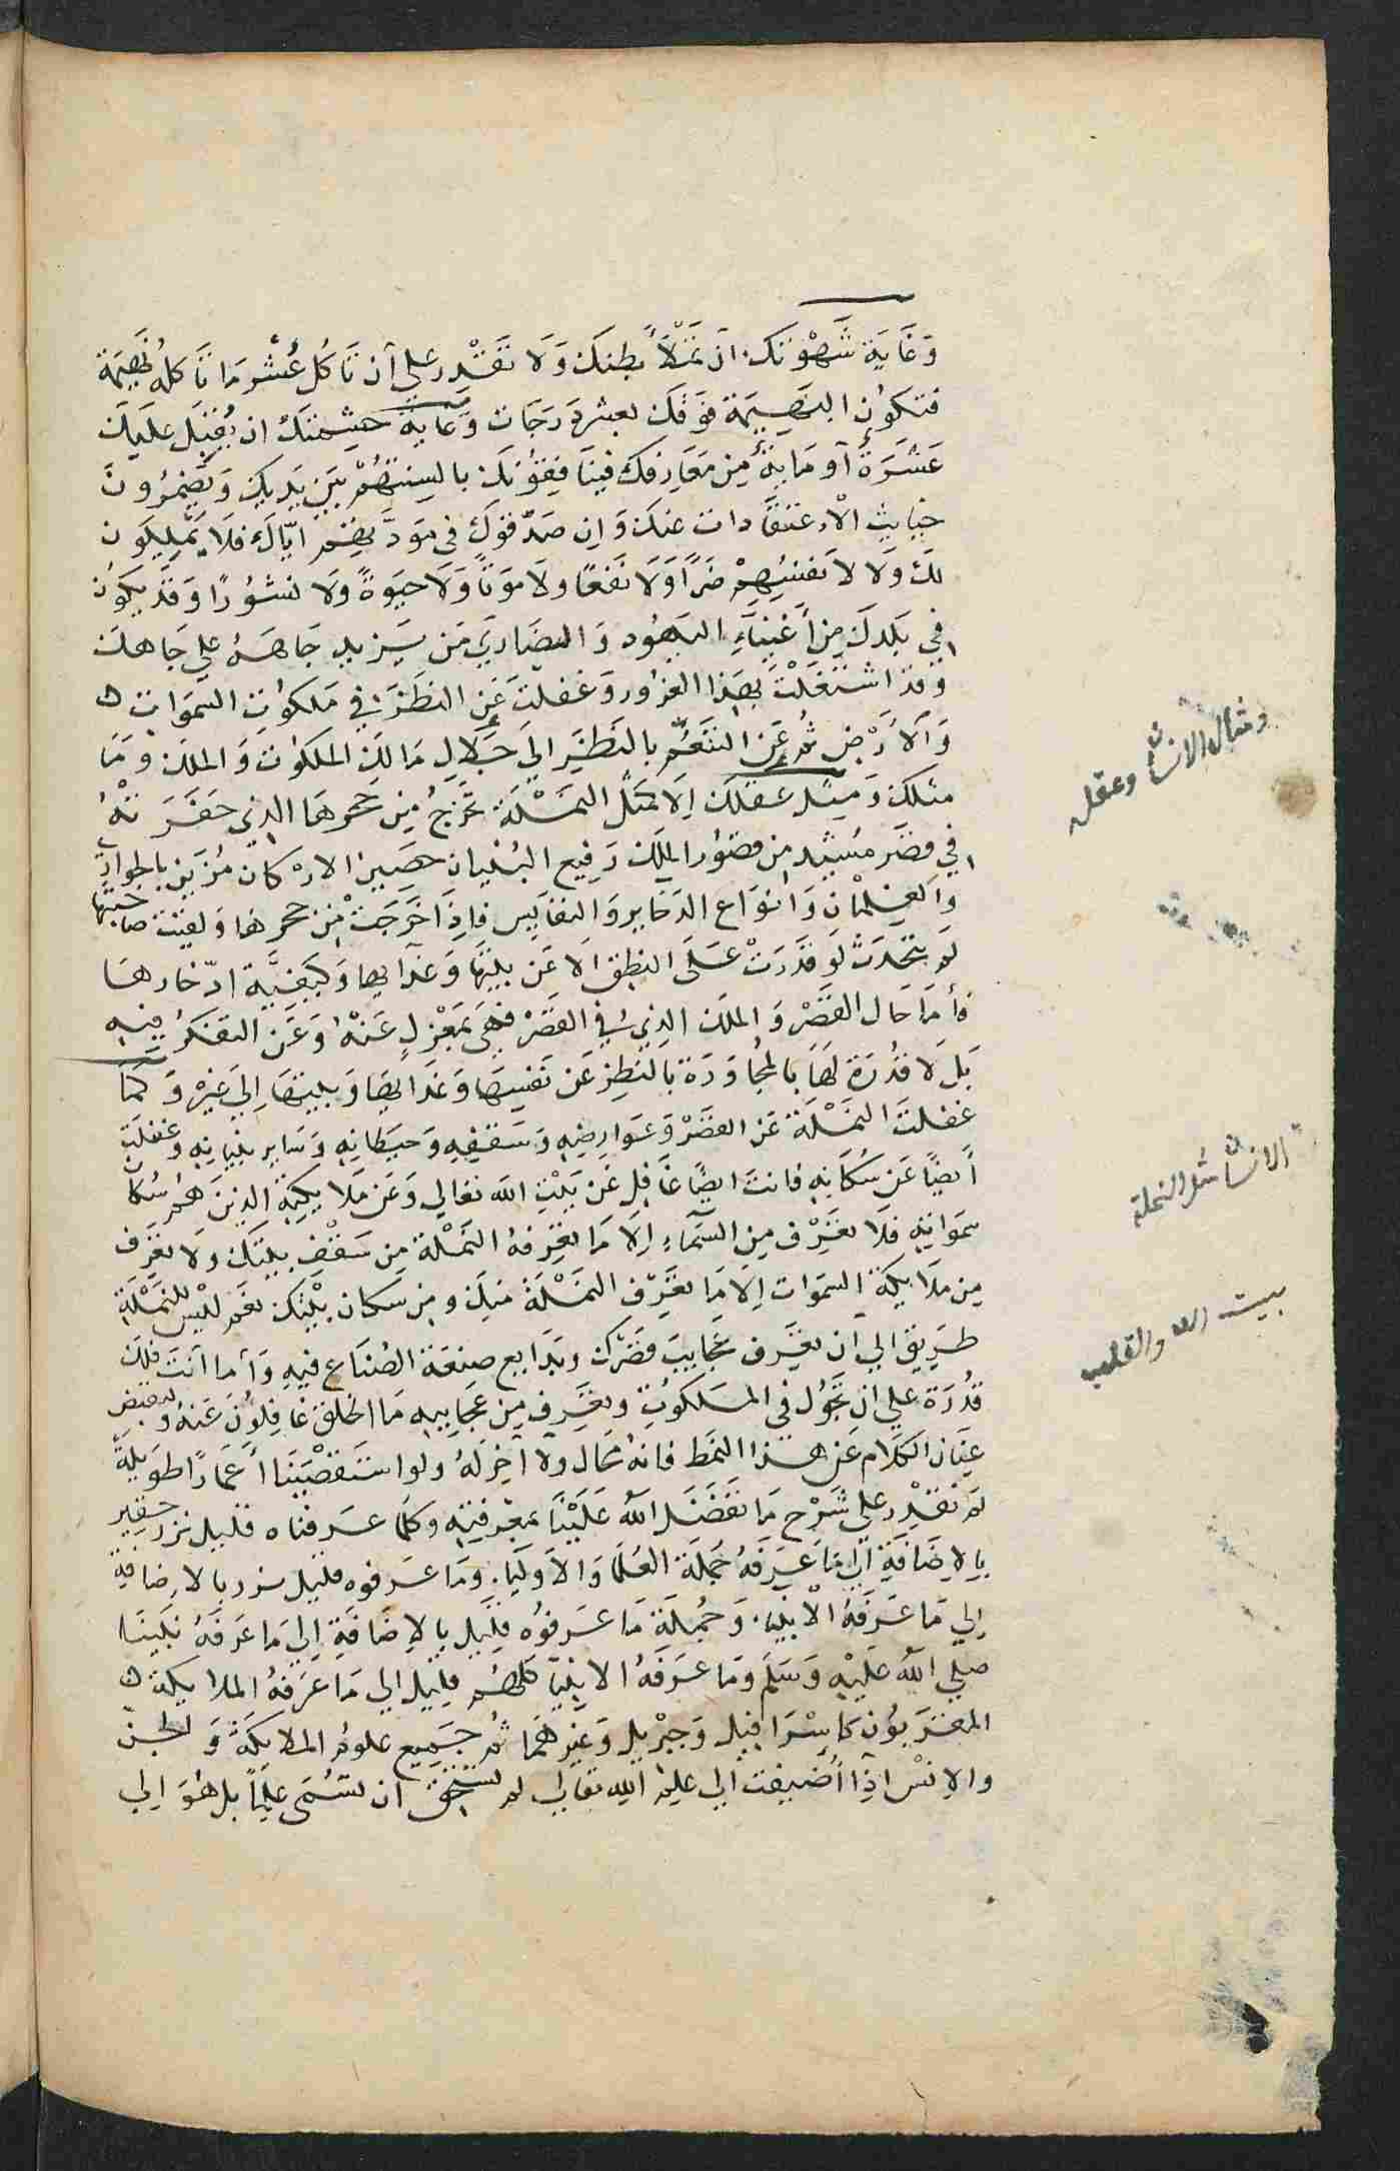 وَغَايَة شَهْوَتكَ ان تمْلأَ بطنكَ وَلَا تقْدر علي أن تَاكُل عُشر مَا تَاكله بَهِيمَة
فتكون البَهِيمَة فوَقكَ بعشر دَرَجَات وَغايَة حشمتكَ ان يُقبَل عليكَ
عَشرَةٌ أو مَايةٌ مِن مَعَارفكَ فينَافِقوُنكَ بالسِنتهُمْ بَين يَديكَ وَيُضمرُونَ
خبَايث الاعتقادات عنكَ وَان صَدَّقوكَ في مَوَدَّتهم ايّاكَ فلَا يملِكون
لكَ وَلا لانفسِهِمْ ضَرًا وَلَا نَفعًا ولا مَوتًا وَلَا حيَوةً وَلا نشوُرًا وَقد يكوُن
في بَلدكَ مِن أغنيَآءِ اليَهوُد وَالنصَاريَ مَن يَزيد جَاههُ علي جَاهكَ
وَقد اشتَغلْتَ بهَذا الغروُر وَغفلتَ عَن النظَر في مَلكوُتِ السموَاتِ
وَالأَرْضِ ثُم عَن التنعُّم بالنَظَر اليَ جَلال مَالكَ الملكوُت وَالملكَ وَمَا
مثلكَ وَمثل عقلكَ الا كمثَل النمْلَة تخرَجُ مِن جحرهَا الذِي حَفرَتهُ
في قصَر مُشيَّد مِن قصوُر الملكَ رَفيع البُنيان حصَين الارْكان مُزيَن بالجوار
وَالغِلمَان وَأنوَاع الذخَاير وَالنفَايس فاِذَا خرَجَتْ مِن جحرهَا وَلقيَتْ صَاحبَتهَا
لَم يتحَدث لَو قدَرَتْ عَلَى النطق الا عَن بيتهَا وَغذآيهَا وَكيفيَّة ادّخارهَا
فأمَا حَال القصَرْ وَالملكَ الذِي في القصَرْ فهيَ بمَعْزل عَنهُ وَعَن التفكرُ فيهِ
بَل لَا قُدرَة لَهَا بالمجاوَزَة بالنَظر عَن نَفسِهَا وَغذَايهَا وَبيتهَا اِليَ غيرْه وَكمَا
غفلتَ النمْلَة عَن القصَرْ وَعَوَارضِهِ وَسَقفِهِ وَحيطَانِهِ وَسَاير بنيَانِهِ وَغفلَت
أيضًا عَن سُكَانِهِ فَانتَ ايضًا غافِل عَن بَيْتِ الله تعَالي وَعَن مَلايِكتِهِ الذين هُمْ سُكان
سموَاتِهِ فلَا تعَرف مِن السَمَآءِ اِلَا مَا تعرفهُ النمْلة مِن سَقفِ بيتكَ وَلا تعَرف
مِن مَلَايكَة السموَات الا مَا تعَرف النمْلَة منكَ وَمِن سكان بيْتكَ نعَم لَيْس للنمْلَةِ
طَريق الي ان تعَرف عجَايبَ قصَركَ وبدَايع صنعَة الصُنَاع فيهِ وَأما أنتَ فلكَ
قُدرَة علي ان تَجُول في الملكوُتِ وَتعَرف مِن عجَايبِهِ مَا الخلق غافِلوُنَ عَنهُ ولنقبض
عِنَان الكَلَام عَن هَذا النمَط فانهُ مجَال لا آخِر لهُ ولو استقصْيَنا أعمَارًا طَويلةً
لَم نقدْر علي شَرْح مَا تفضَّلَ اللهُ عَلَيْنَا بمعْرفتِهِ وكلمَا عَرفناه قليل نزر حقير
بالاضَافَة الي مَا عَرفَهُ جُملَة العُلمَا وَالأوليَا وَمَا عَرَفوه قليل نزر بالاضَافَة
اِلي مَا عَرفَهُ الأنبيَا وَجُملَة مَا عَرفوُه قليَل بالاضَافَة الي مَا عَرَفَهُ نبينَا
صلي اللهُ عَليْهِ وَسَلمَ وَمَا عَرَفَهُ الانبيَا كلهُم قليل الي مَا عَرَفهُ الملايكة
المقرَبوُن كاسْرَافيل وَجبرْيل وَغيرهمَا ثُم جَميع علوم الملايكَة وَالجن
وَالانْس اذا أُضيفت الي علِم اللهِ تعَالي لم تستحق ان تُسَمّى علِمًا بل هُوَ الي
ومثال الانسان وعقله
الانسان مثل النملة
بيت الله والقلب